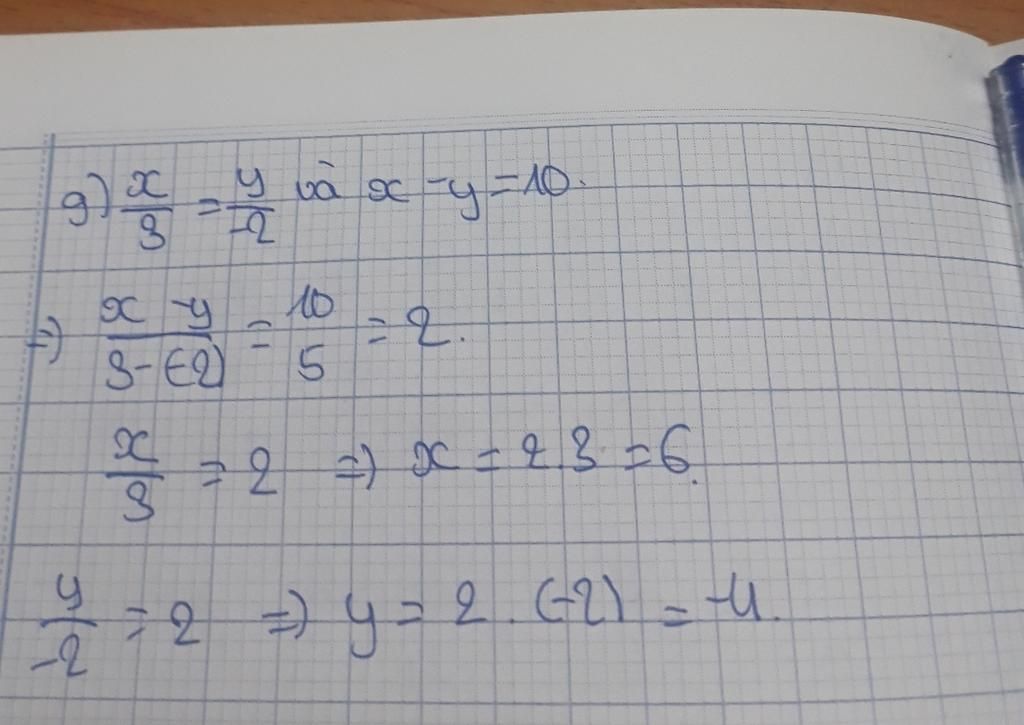 g) x/3 = y/-2 và x - y = 10.
=) x - y/3 - (-2) = 10/5 = 2.
x/3 = 2 =) x = 2.3 = 6.
y/-2 = 2 =) y = 2.(-2) = -4.